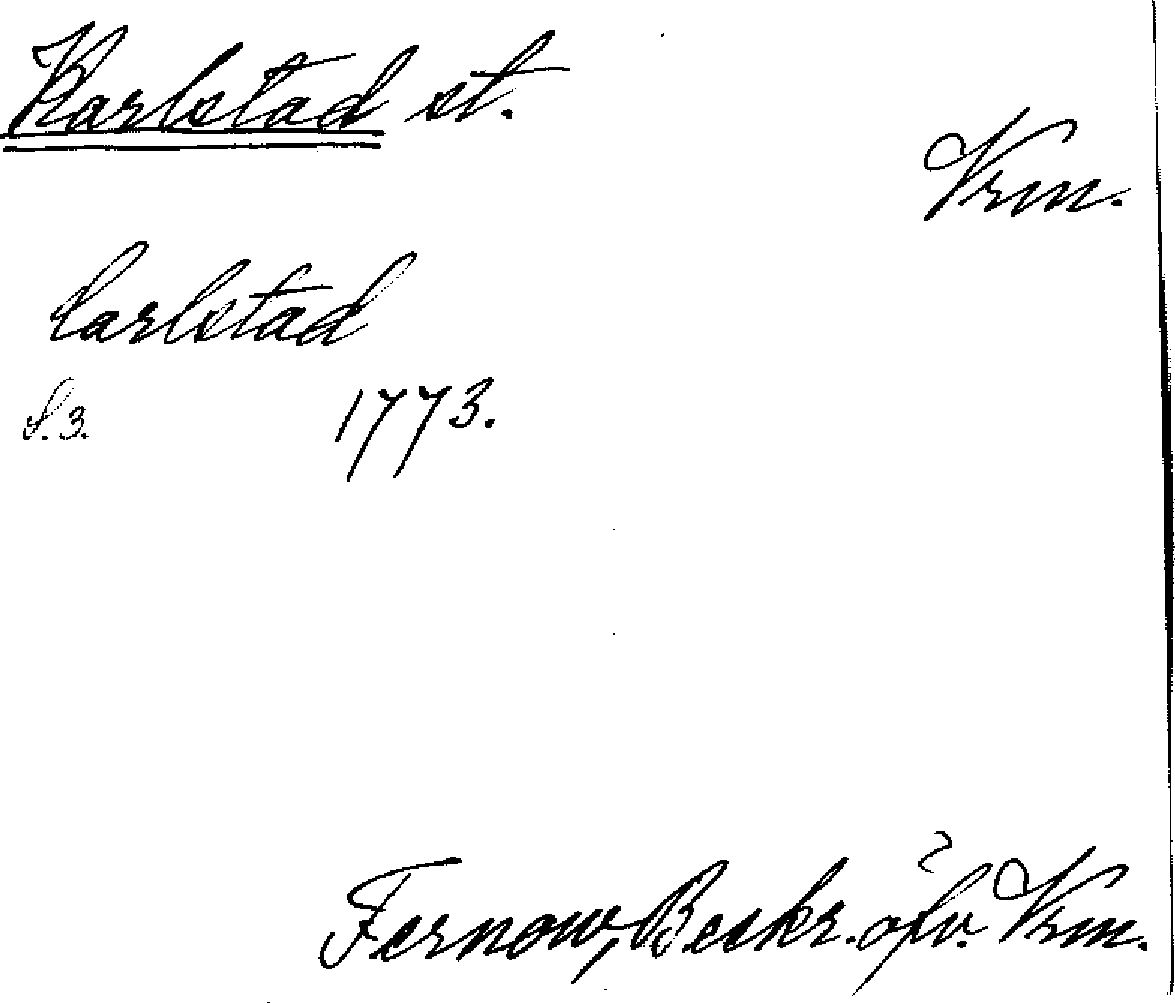 Karlstad st.
Vrm.
Carlstad
S. 3. 1773.
Fernow, Beskr. öfv. Vrm.